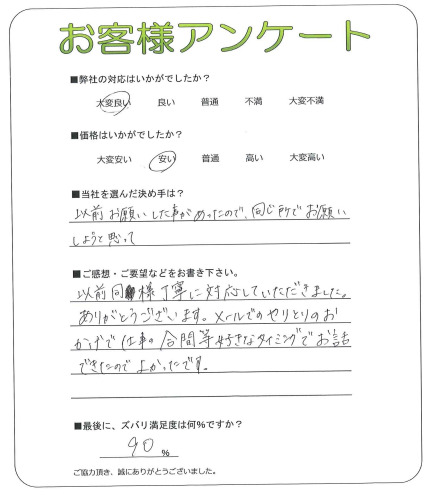 お客様アンケート
■弊社の対応はいかがでしたか?
大変良い 良い 普通 不満 大変不満
■価格はいかがでしたか?
大変安い 安い 普通 高い 大変高い
■当社を選んだ決め手は?
以前お願いした事があったので、同じ所でお願い
しようと思って
■ご感想・ご要望などをお書き下さい。
以前同様丁寧に対応していただきました。
ありがとうございます。メールでのやりとりのお
かげで仕事の合間等好きなタイミングでお話
できたのでよかったです。
■最後に、ズバリ満足度は何%ですか?
90%
ご協力頂き、誠にありがとうございました。